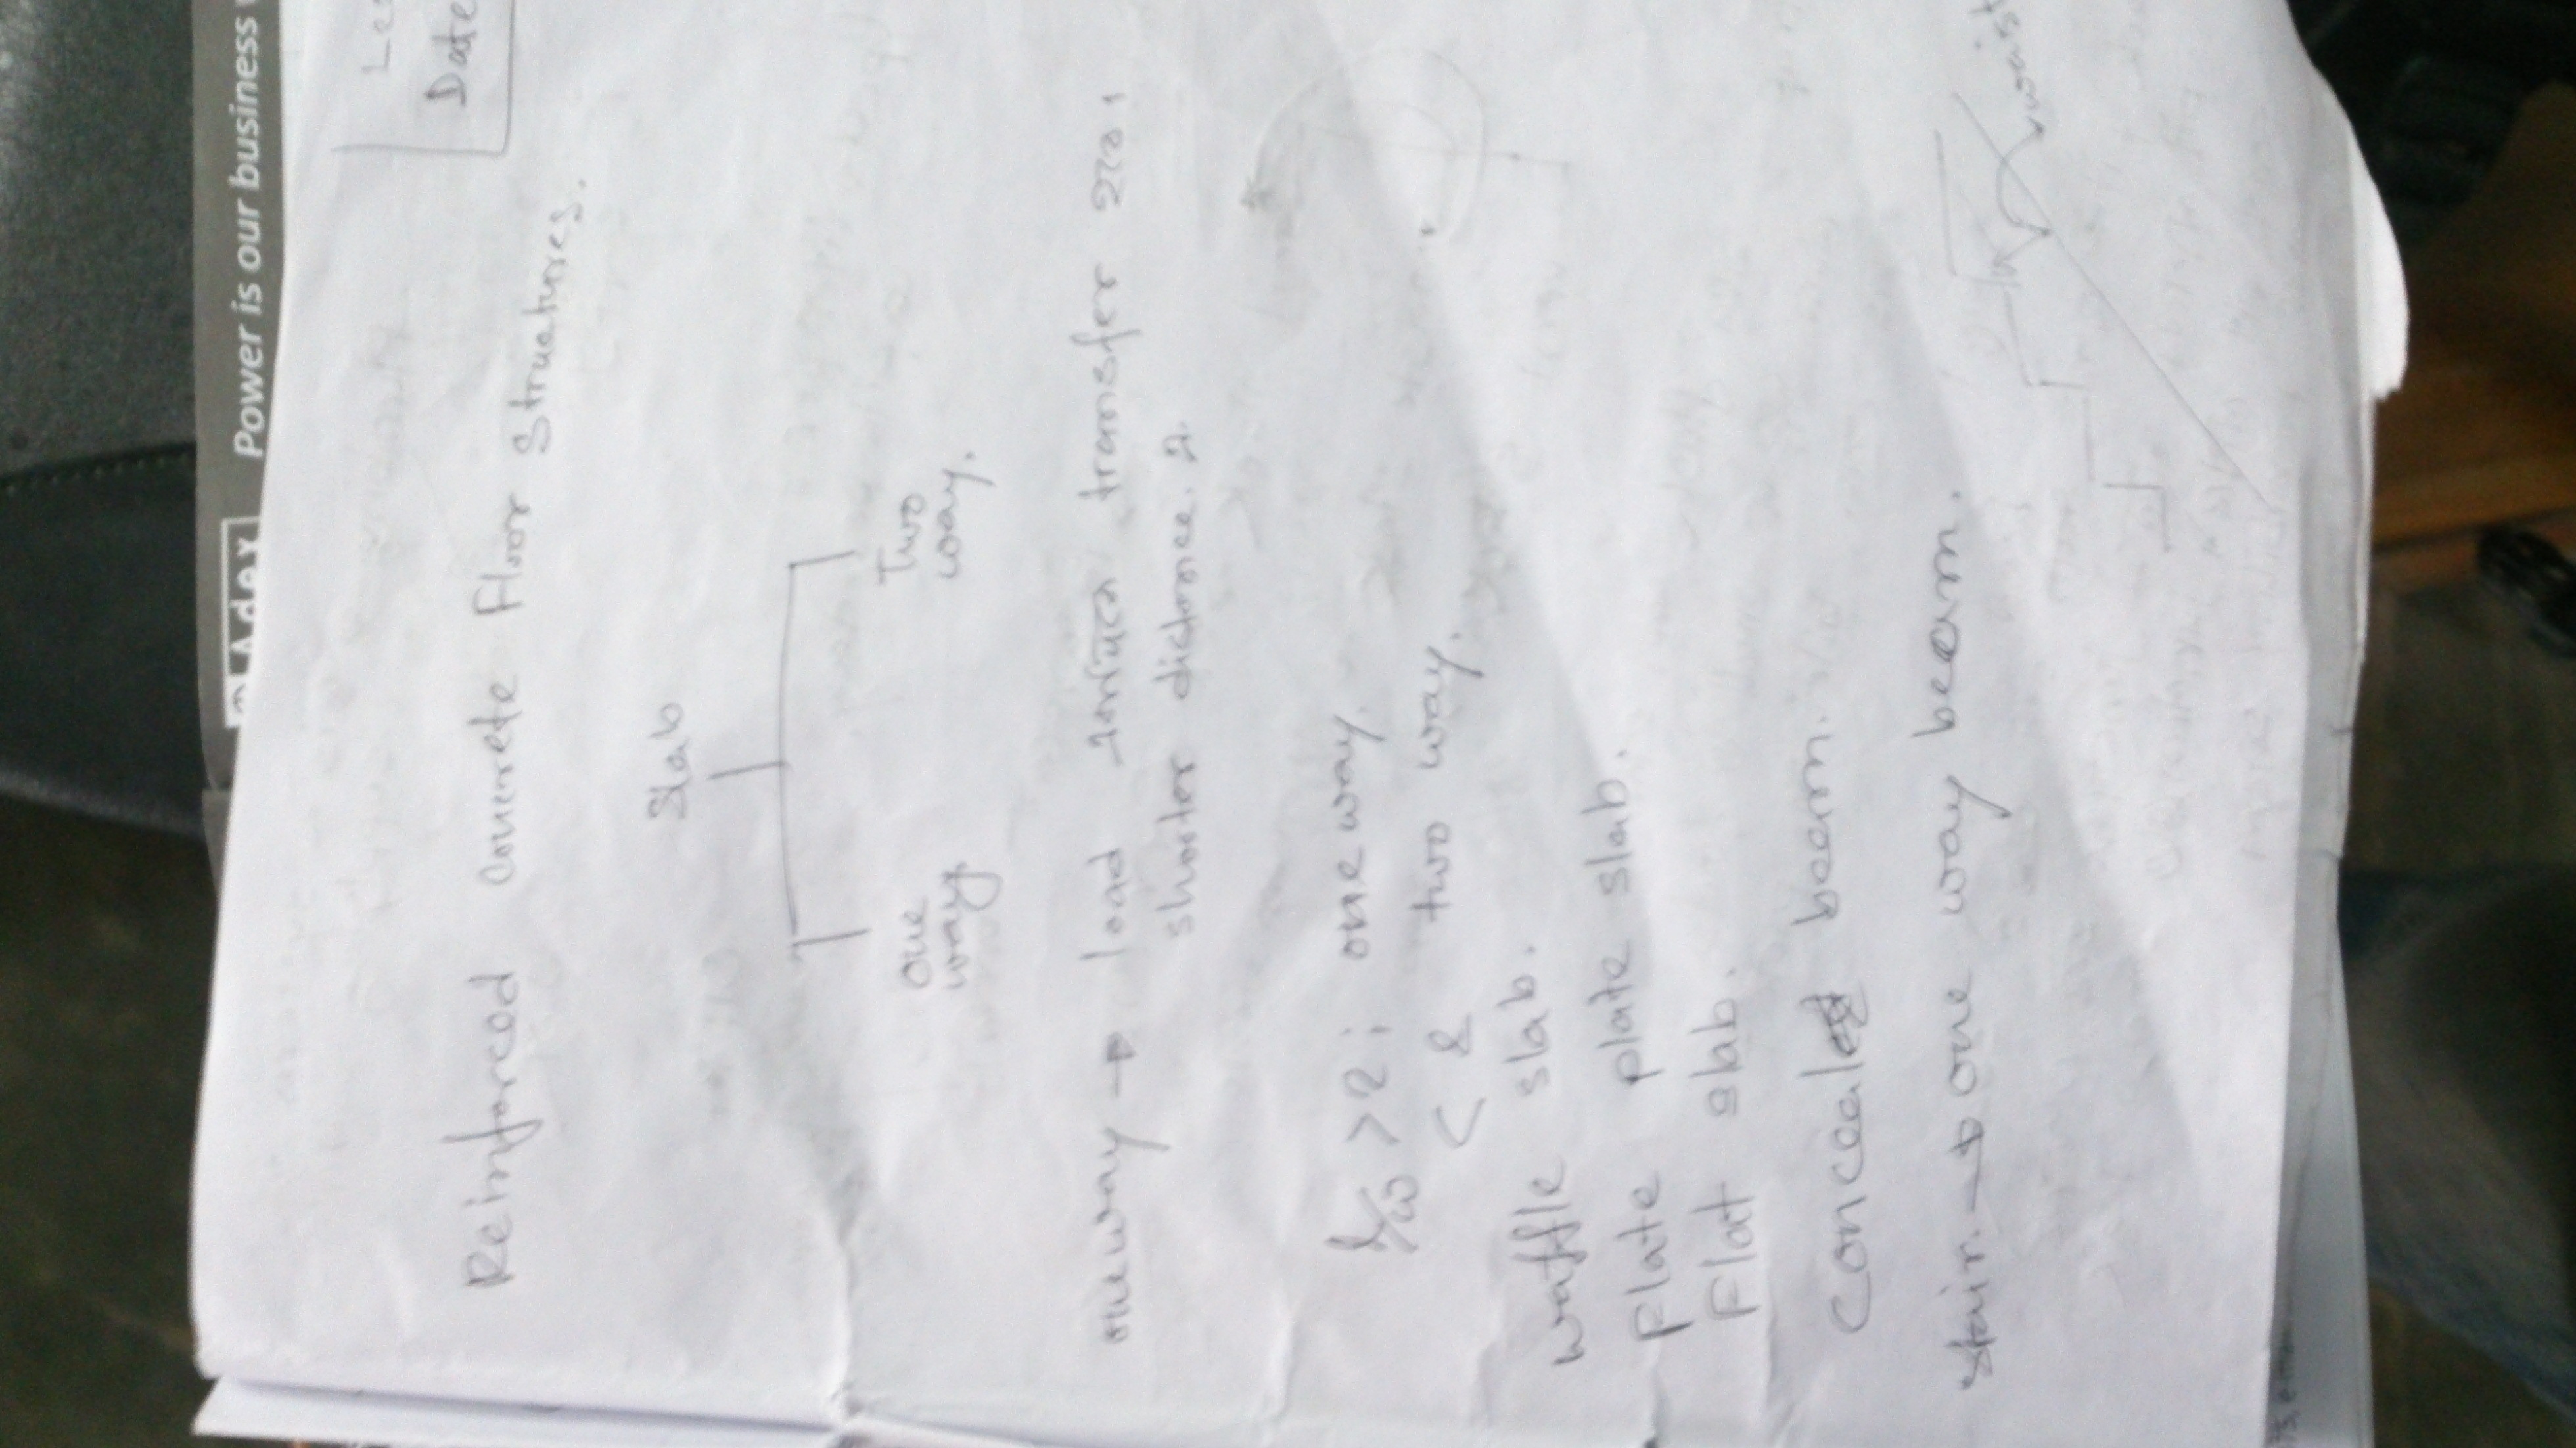 Adex Power is our business
Date
Reinforced concrete Floor Structures.
Slab
One way.
Two way.
one way → load transfer হবে।
shorter distance এ.
l/w > 2 ; one way.
< 2 two way.
waffle slab.
Plate plate slab.
Flat slab.
Concealed beam.
stair → one way beam.
waist